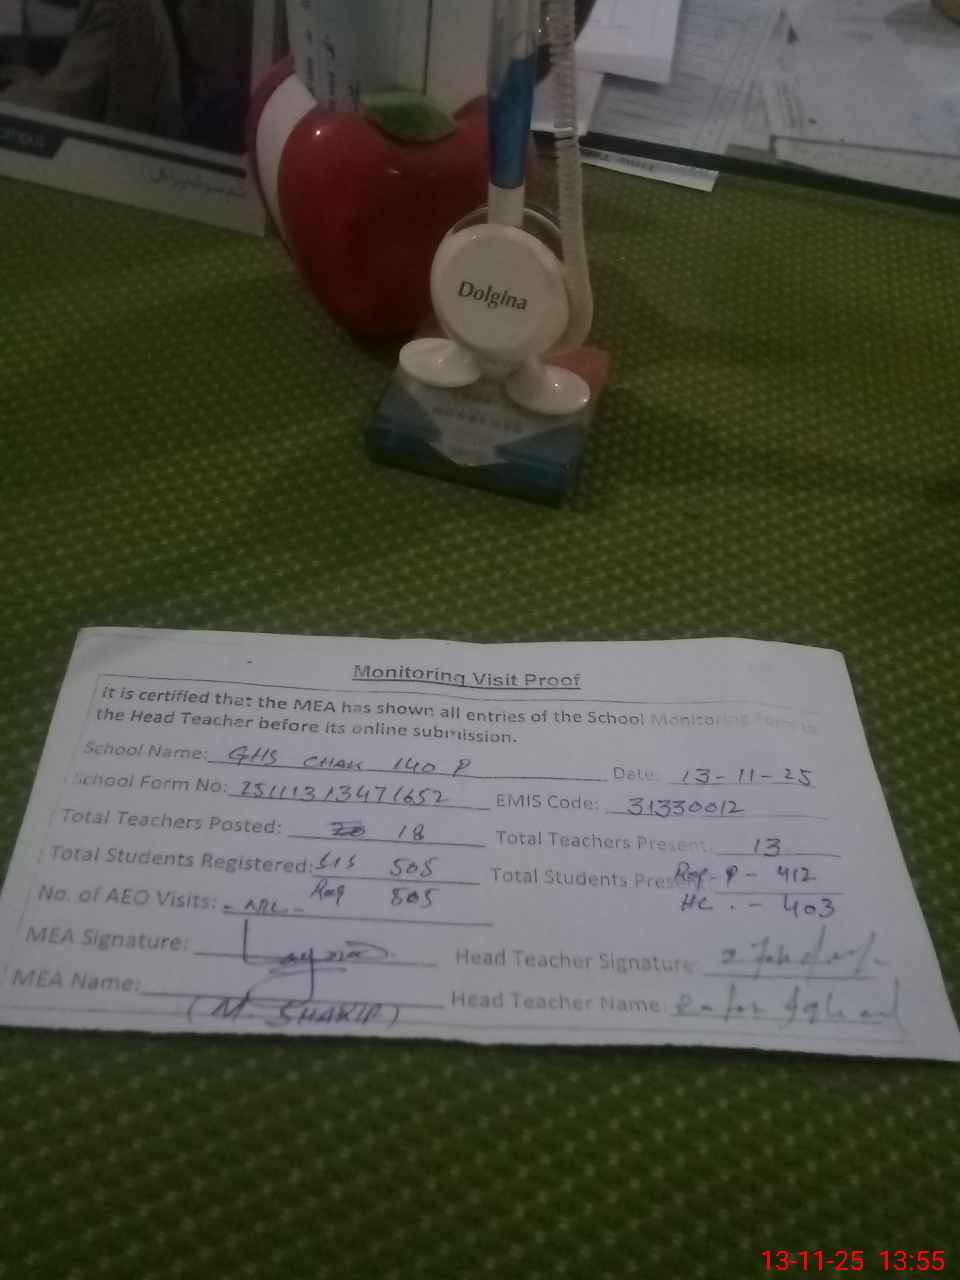 Dolgina
Monitoring Visit Proof
It is certified that the MEA has shown all entries of the School Monitoring Form to
the Head Teacher before its online submission.
School Name: GHS CHAK 140 P Date: 13-11-25
School Form No: 25111313471652 EMIS Code: 31330012
Total Teachers Posted: 18 Total Teachers Present: 13
Total Students Registered: SIS 505 Total Students Present: Reg - P - 412
Reg 505 HC. - 403
No. of AEO Visits: - NIL -
MEA Signature: Head Teacher Signature:
MEA Name: (M. SHAKIR) Head Teacher Name:
13-11-25 13:55